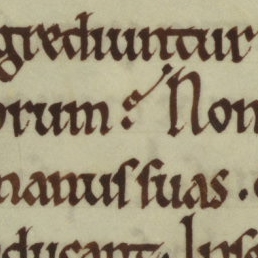 grediuntur
orum. Non
manus suas.
ducant. Ipse